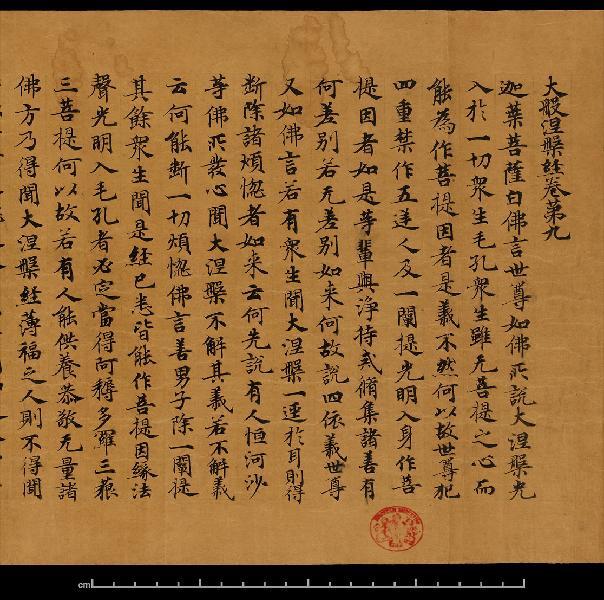 大般涅槃經卷第九
迦葉菩薩白佛言世尊如佛所說大涅槃光
入於一切衆生毛孔衆生雖无菩提之心而
能為作菩提因者是義不然何以故世尊犯
四重禁作五逆人及一闡提光明入身作菩
提因者如是等輩與淨持戒脩集諸善有
何差別若无差別如來何故說四依義世尊
又如佛言若有衆生聞大涅槃一逕於耳則得
斷除諸煩惱者如來云何先說有人恒河沙
等佛所發心聞大涅槃不解其義若不解義
云何能斷一切煩惱佛言善男子除一闡提
其餘衆生聞是經已悉皆能作菩提因緣法
聲光明入毛孔者必定當得阿耨多羅三藐
三菩提何以故若有人能供養恭敬无量諸
佛方乃得聞大涅槃經薄福之人則不得聞
cm